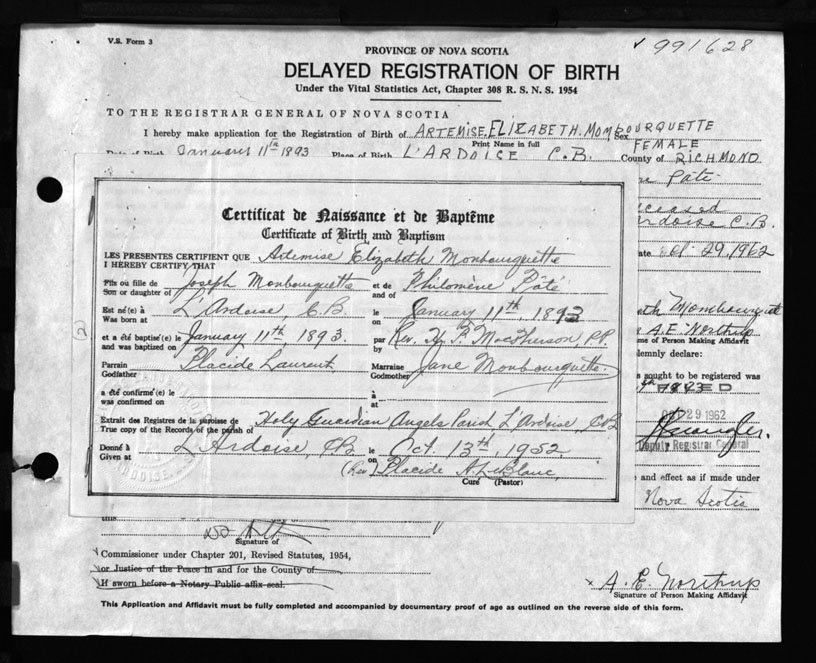 V.S. Form 3
✓991628
PROVINCE OF NOVA SCOTIA
DELAYED REGISTRATION OF BIRTH
Under the Vital Statistics Act, Chapter 308 R. S. N. S. 1954
TO THE REGISTRAR GENERAL OF NOVA SCOTIA
I hereby make application for the Registration of Birth of ARTEMISE. ELIZABETH. MOMBOURQUETTE
Print Name in full Sex FEMALE
Date of Birth January 11th 1893 Place of Birth L'ARDOICE C.B. County of RICHMOND
Pâté
ceased
ardoise C.B.
ate Oct. 29, 1962
Certificat de Naissance et de Baptême
Certificate of Birth and Baptism
LES PRESENTES CERTIFIENT QUE
I HEREBY CERTIFY THAT Artemise Elizabeth Monbourquette
Fils ou fille de Joseph Monbourquette et de Philomène Pâté
Son or daughter of and of
Est né(e) à L'Ardoise, C.B. le January 11th, 1893
Was born at on
et a été baptisé(e) le January 11th, 1893. par Rev. H. F. MacPherson, P.P.
and was baptized on by
Parrain Placide Laurent Marraine Jane Monbourquette.
Godfather Godmother
a été confirmé(e) le à
was confirmed on at
Extrait des Registres de la paroisse de Holy Guardian Angels Parish L'Ardoise, C.B.
True copy of the Records of the parish of
Donné à L'Ardoise, C.B. le Oct. 13th, 1952
Given at on
(Rev.) Placide A. LeBlanc,
Curé (Pastor)
eth Mombourquette
A.E. Northrup
me of Person Making Affidavit
lemnly declare:
sought to be registered was
29 1962
Deputy Registrar General
and effect as if made under
Nova Scotia
this
Signature of
Commissioner under Chapter 201, Revised Statutes, 1954,
or Justice of the Peace in and for the County of
If sworn before a Notary Public affix seal.
x A. E. Northrup
Signature of Person Making Affidavit
This Application and Affidavit must be fully completed and accompanied by documentary proof of age as outlined on the reverse side of this form.